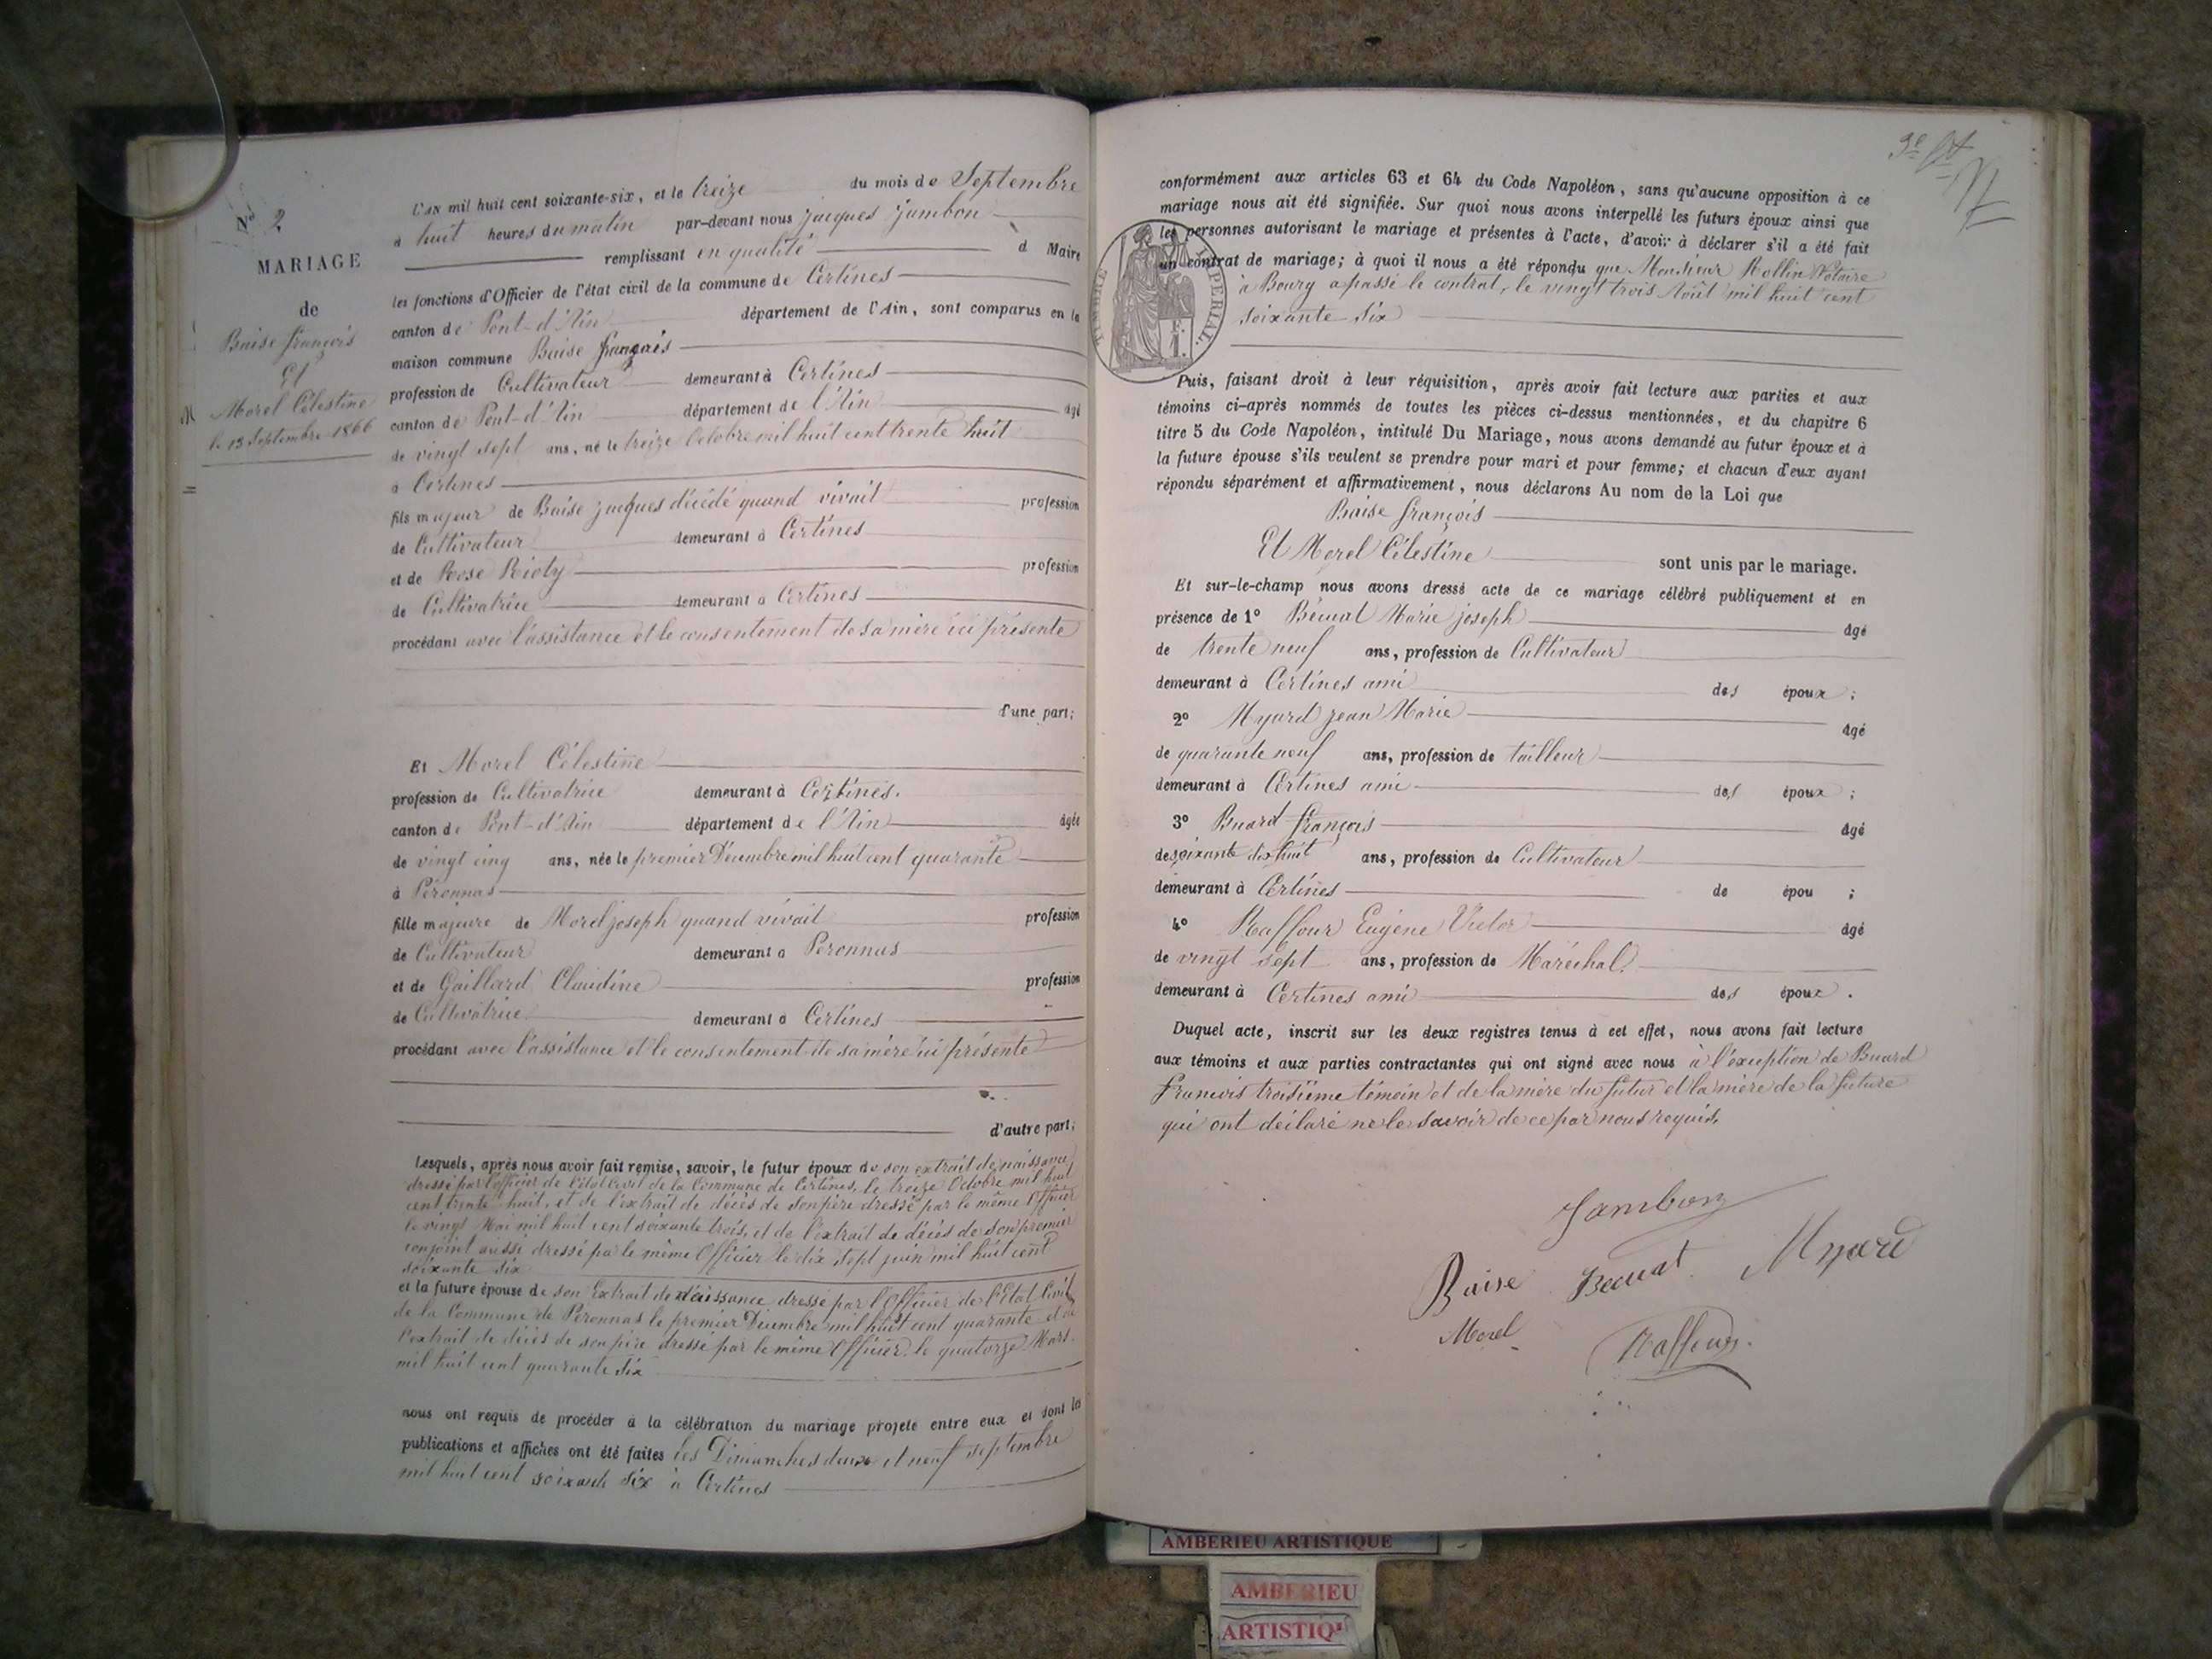 N° 2
MARIAGE
de
Baise françois
Et
Morel Célestine
le 13 Septembre 1866
L'AN mil huit cent soixante-six, et le treize du mois de Septembre
à huit heures du matin par-devant nous Jacques Jambon
remplissant en qualité d Maire
les fonctions d'Officier de l'état civil de la commune de Certines
canton de Pont-d'Ain département de l'Ain, sont comparus en la
maison commune Baise françois
profession de Cultivateur demeurant à Certines
canton de Pont-d'Ain département de l'Ain âgé
de vingt sept ans, né le treize Octobre mil huit cent trente huit
à Certines
fils majeur de Baise jacques décédé quand vivait profession
de Cultivateur demeurant à Certines
et de Rose profession
de Cultivatrice demeurant à Certines
procédant avec l'assistance et le consentement de sa mère ici présente
d'une part;
Et Morel Célestine
profession de Cultivatrice demeurant à Certines.
canton de Pont-d'Ain département de l'Ain âgée
de vingt cinq ans, née le premier Décembre mil huit cent quarante
à Péronnas
fille majeure de Morel joseph quand vivait profession
de Cultivateur demeurant à Péronnas
et de Gaillard Claudine profession
de Cultivatrice demeurant à Certines
procédant avec l'assistance et le consentement de sa mère ici présente
d'autre part;
Lesquels, après nous avoir fait remise, savoir, le futur époux de son extrait de naissance
dressé par l'officier de l'état Civil de la Commune de Certines, le treize Octobre mil huit
cent trente huit, et de l'extrait de décès de son père dressé par le même Officier
le vingt Mai mil huit cent soixante trois, et de l'extrait de décès de son premier
conjoint aussi dressé par le même Officier le dix sept juin mil huit cent
soixante six
et la future épouse de son Extrait de naissance dressé par l'Officier de l'Etat Civil
de la Commune de Péronnas le premier Décembre mil huit cent quarante et de
l'extrait de décès de son père dressé par le même Officier le quatorze Mars
mil huit cent quarante six
nous ont requis de procéder à la célébration du mariage projeté entre eux et dont les
publications et affiches ont été faites les Dimanches deux et neuf septembre
mil huit cent soixante six à Certines
conformément aux articles 63 et 64 du Code Napoléon, sans qu'aucune opposition à ce
mariage nous ait été signifiée. Sur quoi nous avons interpellé les futurs époux ainsi que
les personnes autorisant le mariage et présentes à l'acte, d'avoir à déclarer s'il a été fait
un contrat de mariage; à quoi il nous a été répondu que Monsieur Rollin Notaire
à Bourg a passé le contrat, le vingt trois Août mil huit cent
soixante six
TIMBRE IMPERIAL.
Puis, faisant droit à leur réquisition, après avoir fait lecture aux parties et aux
témoins ci-après nommés de toutes les pièces ci-dessus mentionnées, et du chapitre 6
titre 5 du Code Napoléon, intitulé Du Mariage, nous avons demandé au futur époux et à
la future épouse s'ils veulent se prendre pour mari et pour femme; et chacun d'eux ayant
répondu séparément et affirmativement, nous déclarons Au nom de la Loi que
Baise françois
Et Morel Célestine sont unis par le mariage.
Et sur-le-champ nous avons dressé acte de ce mariage célébré publiquement et en
présence de 1° Bécuat Marie joseph âgé
de trente neuf ans, profession de Cultivateur
demeurant à Certines ami des époux ;
2° Myard jean Marie âgé
de quarante neuf ans, profession de tailleur
demeurant à Certines ami des époux ;
3° Buard françois âgé
de soixante dix huit ans, profession de Cultivateur
demeurant à Certines de épou ;
4° Raffour Eugène Victor âgé
de vingt sept ans, profession de Maréchal
demeurant à Certines ami des époux .
Duquel acte, inscrit sur les deux registres tenus à cet effet, nous avons fait lecture
aux témoins et aux parties contractantes qui ont signé avec nous à l'exception de Buard
françois troisième témoin et de la mère du futur et la mère de la future
qui ont déclaré ne le savoir de ce par nous requis.
Jambon
Baise Becuat Myard
Morel Raffour
AMBERIEU ARTISTIQUE
AMBERIEU
ARTISTIQ